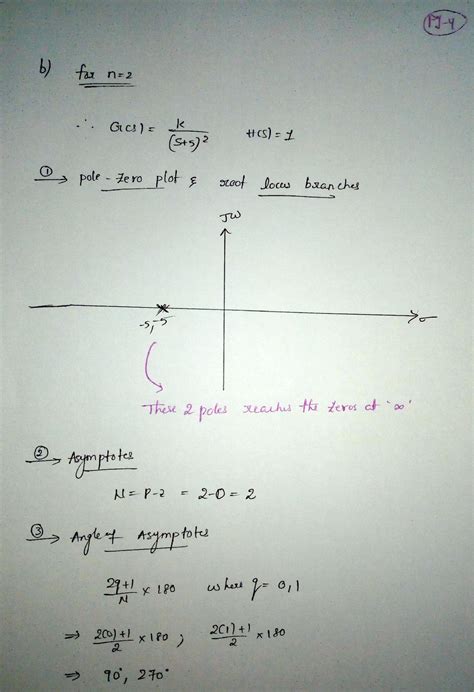 PJ-4
b) for n=2
∴ G(s) = K/(s+5)² H(s) = 1
① → pole-zero plot & root locus branches
jω
σ
-5,-5
These 2 poles reaches the zeros at '∞'
② → Asymptotes
N = P-z = 2-0 = 2
③ → Angle of Asymptotes
2q+1/N × 180 where q = 0,1
⇒ 2(0)+1/2 × 180 ; 2(1)+1/2 × 180
⇒ 90°, 270°